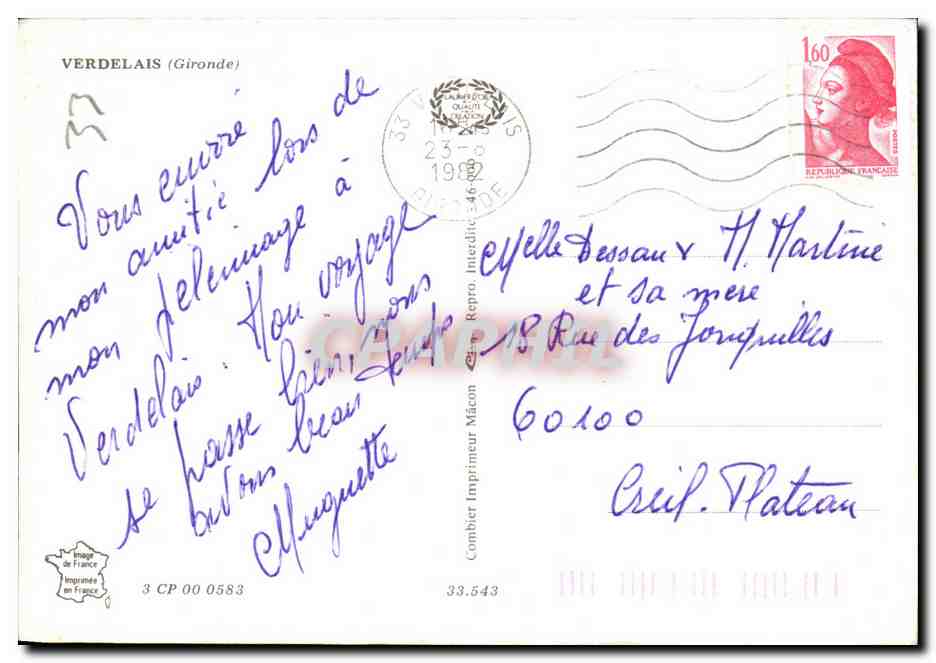 VERDELAIS (Gironde)
33
Vous envoie
mon amitié lors de
mon pelerinage à
Verdelais. Mon voyage
se passe bien, nous
avons beau temps
Muguette
LAURIER D'OR
QUALITÉ
CREATION
33
23-8
1982
GIRONDE
1,60
POSTES
REPUBLIQUE FRANCAISE
Melle Dessaux M. Martine
et sa mere
18 Rue des Jonquilles
60100
Creil. Plateau
CPAPHIL
Combier Imprimeur Mâcon
Repro. Interdite
Image
de France
Imprimée
en France
3 CP 00 0583
33.543